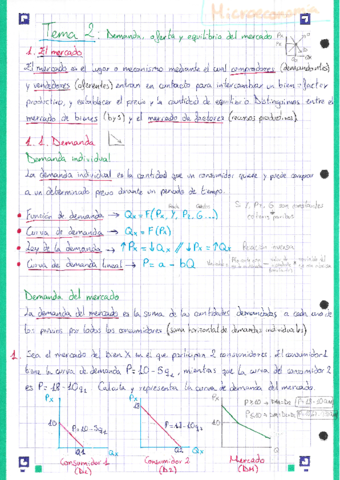 Microeconomía
Tema 2: Demanda, oferta y equilibrio del mercado
1. El mercado
El mercado es el lugar o mecanismo mediante el cual compradores (demandantes)
y vendedores (oferentes) entran en contacto para intercambiar un bien o factor
productivo, y establecer el precio y la cantidad de equilibrio. Distinguimos entre el
mercado de bienes (b y s) y el mercado de factores (recursos productivos).
1.1. Demanda
Demanda individual
La demanda individual es la cantidad que un consumidor quiere y puede comprar
a un determinado precio durante un periodo de tiempo.
• Función de demanda → Qx = F(Px, Y, Pz, G...)
• Curva de demanda → Qx = F(Px)
• Ley de la demanda → ↑Px = ↓Qx // ↓Px = ↑Qx
• Curva de demanda lineal → P = a - bQ
Demanda del mercado
La demanda del mercado es la suma de las cantidades demandadas a cada uno de
los precios por todos los consumidores (suma horizontal de demandas individuales)
1. Sea el mercado del bien X en el que participan 2 consumidores. El consumidor 1
tiene la curva de demanda P=10-5q1, mientras que la curva del consumidor 2
es P=18-10q2. Calcula y representa la curva de demanda del mercado.
Px
Px
Px
10
P=10-5q1
P=18-10q2
10
Q1
Qx
Q2
Qx
Qx
Consumidor 1
Consumidor 2
Mercado